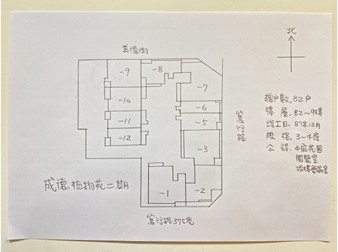 北
萬億街
-9
-8
-7
-10
-6
-11
-5
-12
-3
-1
-2
篤行路
篤行路395巷
成億植物花二期
總戶數. 82戶
樓層. B2~9樓
完工日. 87年12月
規格. 3~4房
公設. 中庭花園
閱覽室